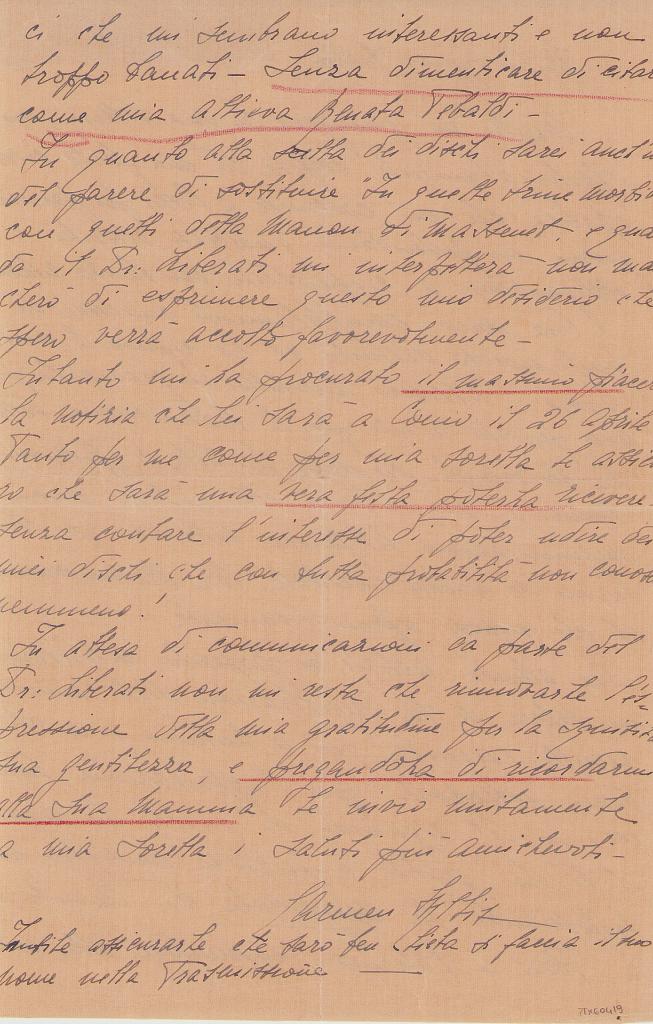 ci che mi sembrano interessanti e non
troppo banali – Senza dimenticare di citar
come mia allieva Renata Tebaldi –
In quanto alla scelta dei dischi sarei anch'io
del parere di sostituire "In quelle trine morbi
con quelli della Manon di Massenet, e qua
do il Dr: Liberati mi interpellerà non ma
cherò di esprimere questo mio desiderio che
spero verrà accolto favorevolmente –
Intanto mi ha procurato il massimo piacer
la notizia che lei sarà a Como il 26 Aprile
Tanto per me come per mia sorella Le assicu
ro che sarà una vera festa poterla ricevere –
senza contare l'interesse di poter udire dei
miei dischi che con tutta probabilità non conos
nemmeno!
In attesa di comunicazioni da parte del
Dr: Liberati non mi resta che rinnovarle l'es-
pressione della mia gratitudine per la squisita
sua gentilezza, e pregandola di ricordarmi
alla Sua Mamma Le invio unitamente
a mia sorella i saluti più amichevoli –
Carmen Melis
Inutile assicurarle che sarò ben lieta si faccia il suo
nome nella Trasmissione —